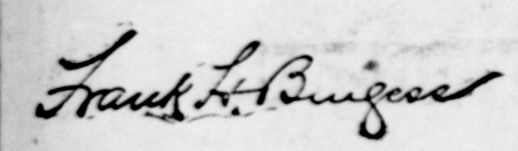 Frank H. Burgess